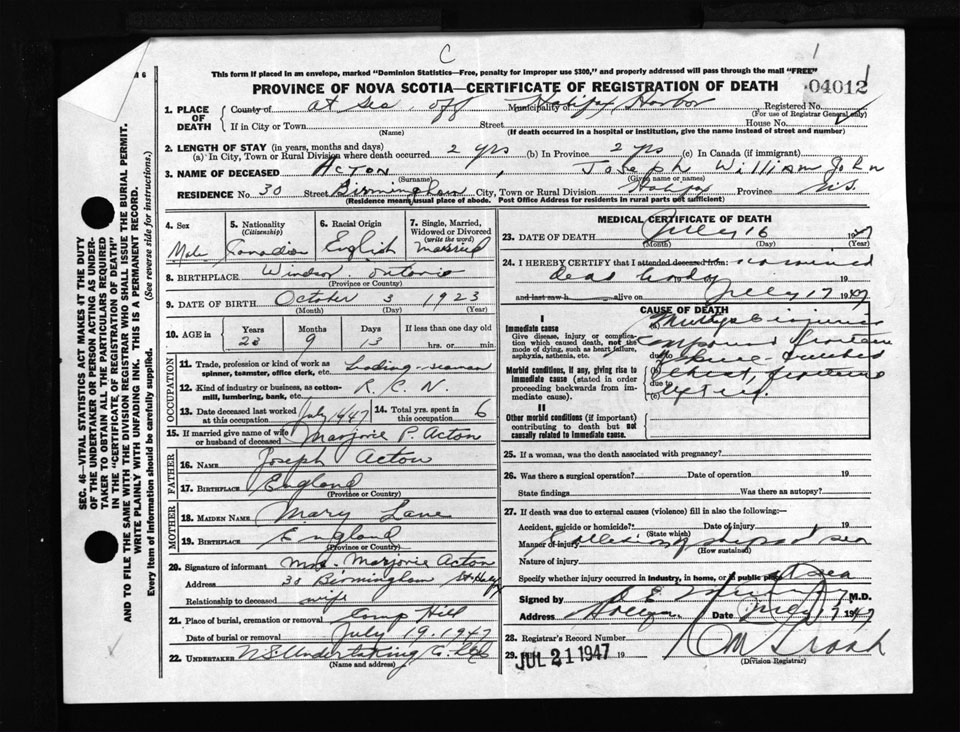 C
1
This form if placed in an envelope, marked "Dominion Statistics—Free, penalty for improper use $300," and properly addressed will pass through the mail "FREE"
PROVINCE OF NOVA SCOTIA—CERTIFICATE OF REGISTRATION OF DEATH
04012
1. PLACE OF DEATH
County of at sea off Municipality of Halifax Harbor Registered No.
(For use of Registrar General only)
If in City or Town Street House No.
(Name) (If death occurred in a hospital or institution, give the name instead of street and number)
2. LENGTH OF STAY (in years, months and days)
(a) In City, Town or Rural Division where death occurred 2 yrs (b) In Province 2 yrs (c) In Canada (if immigrant)
3. NAME OF DECEASED Acton, Joseph William John
(Surname) (Given name or names)
RESIDENCE No. 30 Street Birmingham City, Town or Rural Division Halifax Province N.S.
(Residence means usual place of abode. Post Office Address for residents in rural parts not sufficient)
4. Sex
Male
5. Nationality
(Citizenship)
Canadian
6. Racial Origin
English
7. Single, Married, Widowed or Divorced
(write the word)
Married
8. BIRTHPLACE Windsor, Ontario
(Province or Country)
9. DATE OF BIRTH October 3 1923
(Month) (Day) (Year)
10. AGE in
Years Months Days If less than one day old
23 9 13 hrs. or min.
OCCUPATION
11. Trade, profession or kind of work as spinner, teamster, office clerk, etc. Leading-seaman
12. Kind of industry or business, as cotton-mill, lumbering, bank, etc. R.C.N.
13. Date deceased last worked at this occupation July 1947
14. Total yrs. spent in this occupation 6
15. If married give name of wife or husband of deceased Marjorie P. Acton
FATHER
16. NAME Joseph Acton
17. BIRTHPLACE England
(Province or Country)
MOTHER
18. MAIDEN NAME Mary Lane
19. BIRTHPLACE England
(Province or Country)
20. Signature of informant Mrs. Marjorie Acton
Address 30 Birmingham St. Halfx
Relationship to deceased wife
21. Place of burial, cremation or removal Camp Hill
Date of burial or removal July 19. 1947
22. UNDERTAKER N.S. Undertaking Co. Ltd
(Name and address)
MEDICAL CERTIFICATE OF DEATH
23. DATE OF DEATH July 16 1947
(Month) (Day) (Year)
24. I HEREBY CERTIFY that I attended deceased from: examined
dead body 19
and last saw h alive on July 17 1947
CAUSE OF DEATH
I
Immediate cause
Give disease, injury or complication which caused death, not the mode of dying, such as heart failure, asphyxia, asthenia, etc.
Morbid conditions, if any, giving rise to immediate cause (stated in order proceeding backwards from immediate cause).
II
Other morbid conditions (if important) contributing to death but not causally related to immediate cause.
(a) Multiple injuries
compound fracture
due to
(b) crushed
chest, fracture
due to
(c)
25. If a woman, was the death associated with pregnancy?
26. Was there a surgical operation? Date of operation 19
State findings Was there an autopsy?
27. If death was due to external causes (violence) fill in also the following:
Accident, suicide or homicide? Date of injury 19
(State which)
Manner of injury Collision of ships at sea
(How sustained)
Nature of injury
Specify whether injured in industry, in home, or in public place at sea
Signed by M.D.
Address Date July 17 1947
28. Registrar's Record Number
29. JUL 21 1947 19
(Division Registrar)
SEC. 46—VITAL STATISTICS ACT MAKES IT THE DUTY OF THE UNDERTAKER OR PERSON ACTING AS UNDERTAKER TO OBTAIN ALL THE PARTICULARS REQUIRED IN THE "CERTIFICATE OF REGISTRATION OF DEATH" AND TO FILE THE SAME WITH THE DIVISION REGISTRAR WHO SHALL ISSUE THE BURIAL PERMIT.
WRITE PLAINLY WITH UNFADING INK. THIS IS A PERMANENT RECORD.
Every item of information should be carefully supplied. (See reverse side for instructions.)